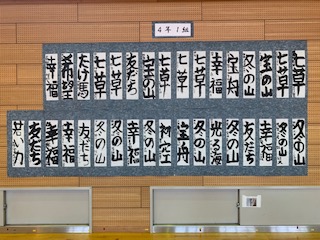 4年1組
七草
七草
宝の山
冬の山
宝舟
幸福
七草
七草
七草
宝の山
友だち
七草
七草
たけ馬
希望
幸福
冬の山
冬の山
幸福
友だち
冬の山
光る海
冬の山
宝舟
初空
冬の山
幸福
冬の山
冬の山
友だち
幸福
幸福
友だち